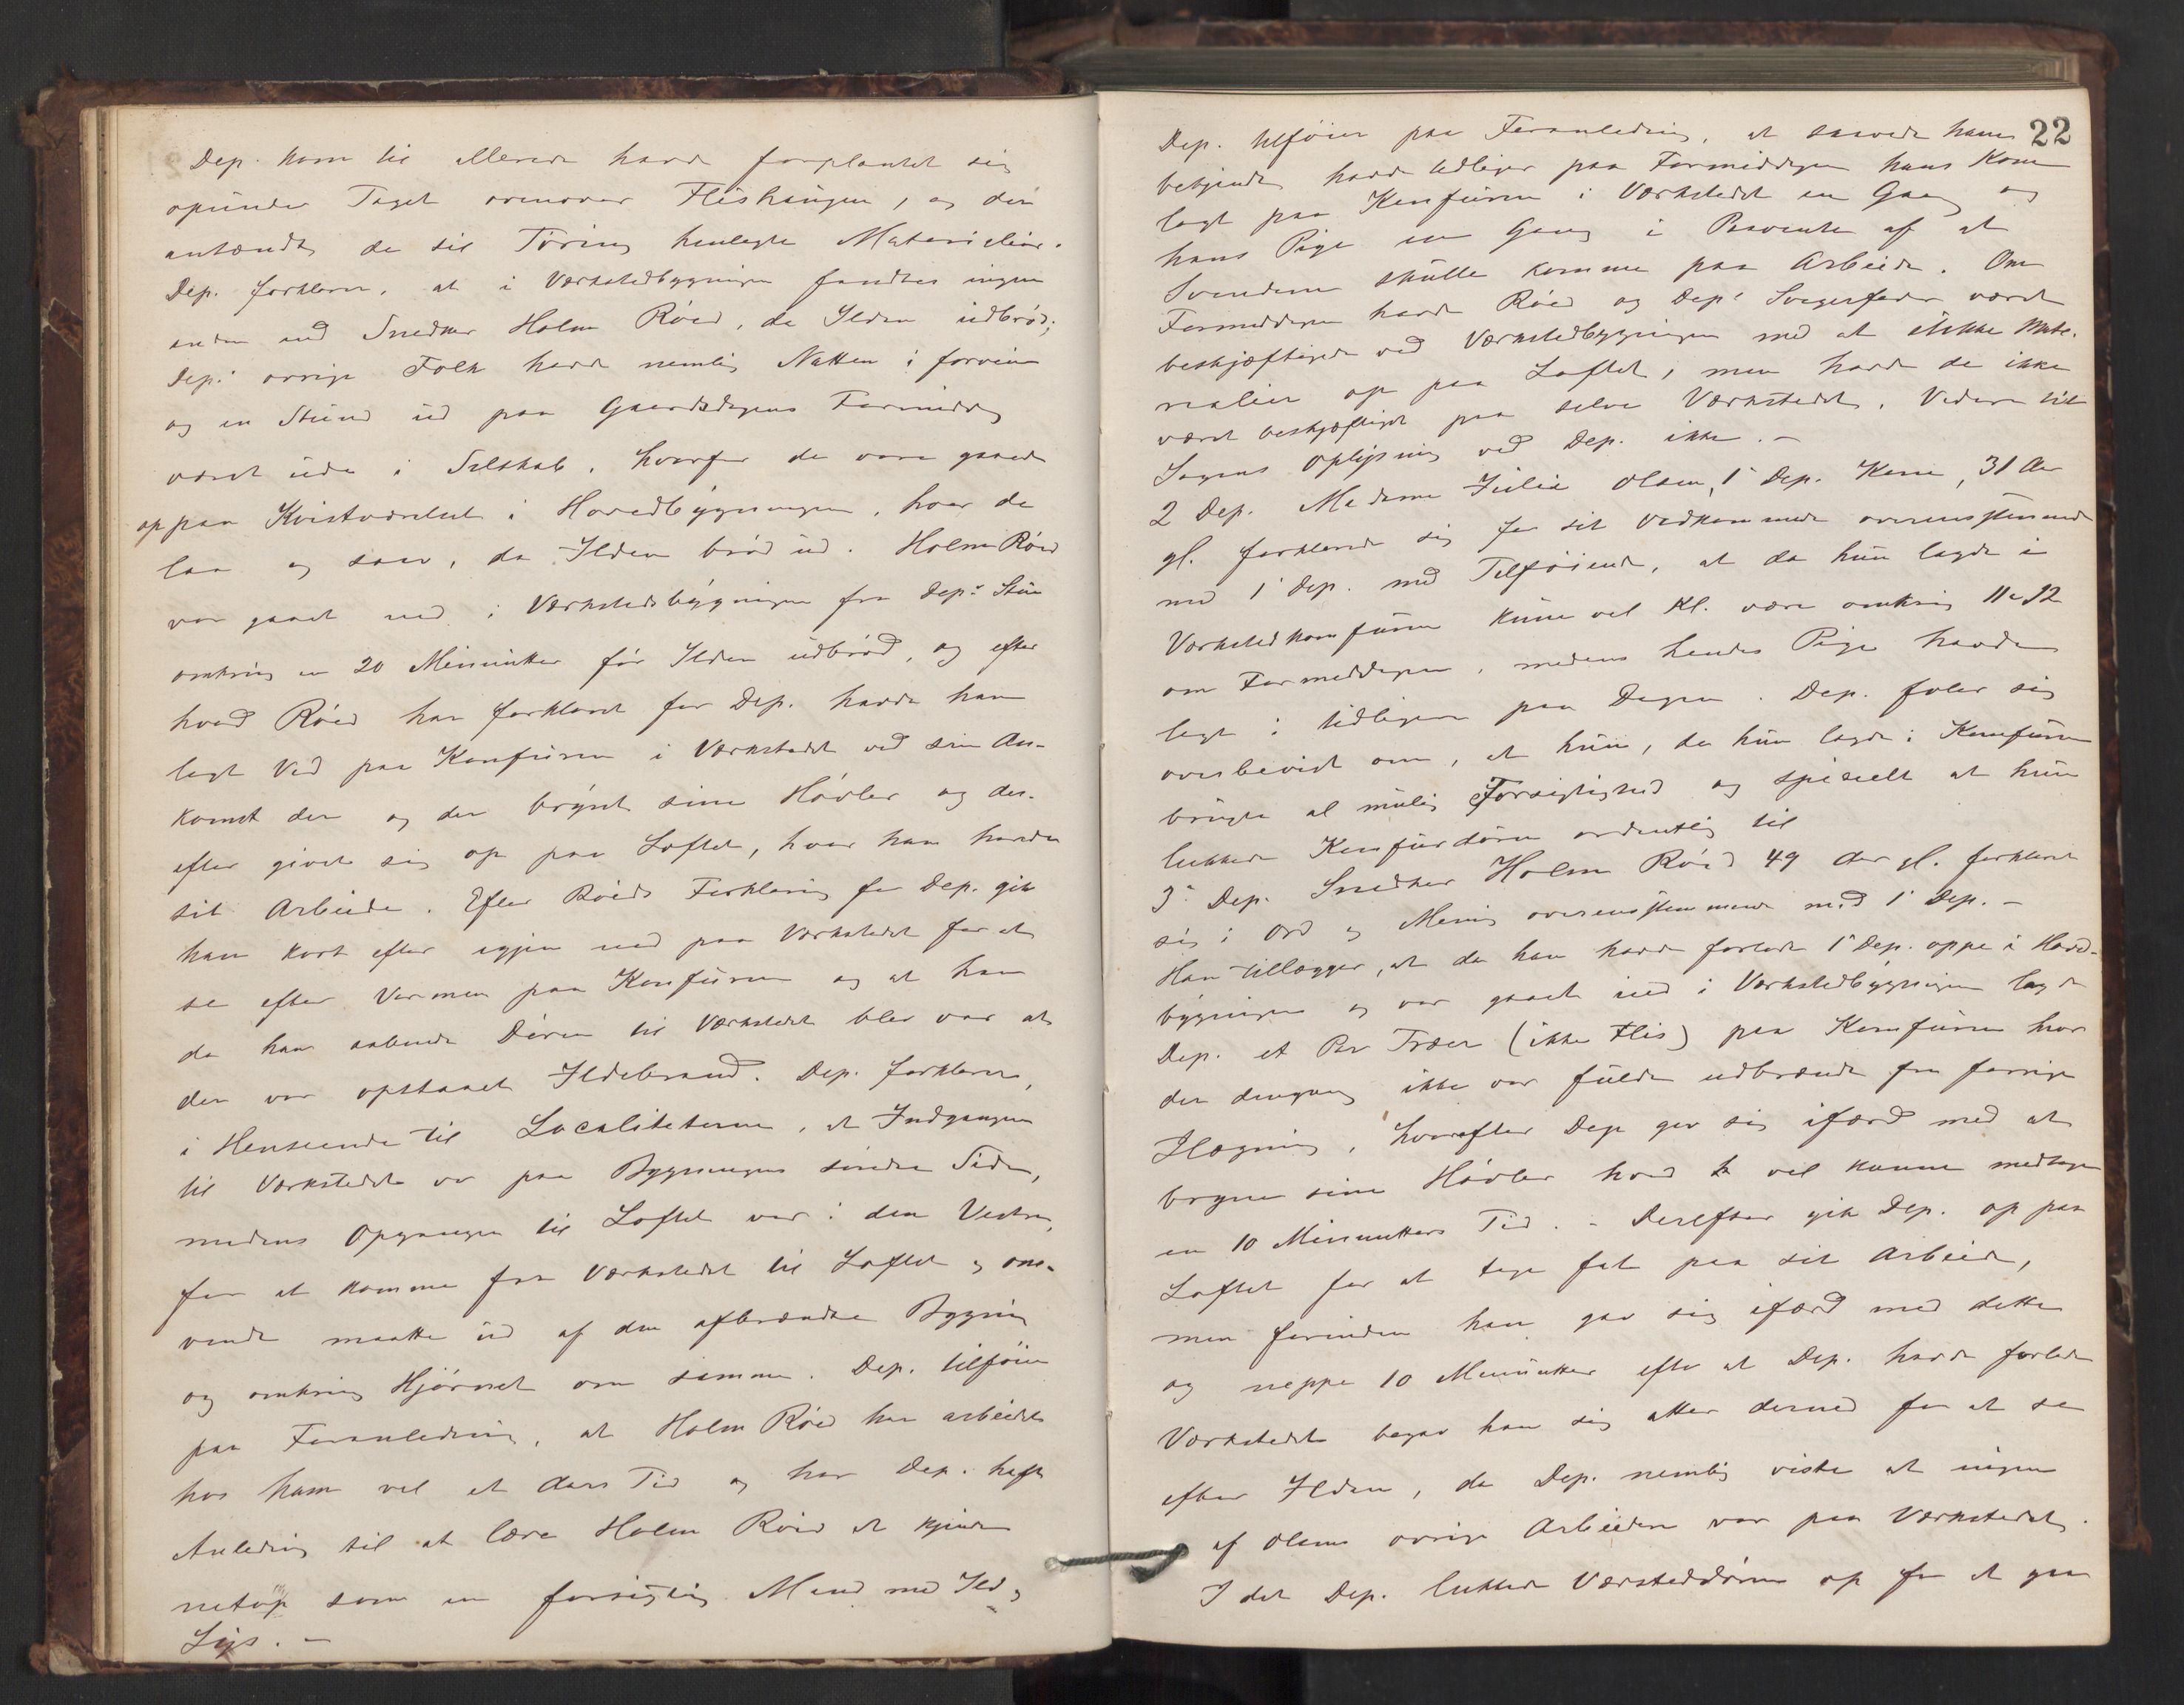 Dep. kom til allerede havde forplantet sig
opunder Taget ovenover Flishaugen, og der
antændt de til Törring henlagte Materialier.
Dep. forklarer, at i Værkstedbygningen fandtes ingen
anden end Snedker Holm Röed, da Ilden udbröd;
Dep. övrige Folk havde nemlig Natten i forveien
og en Stund ud paa Gaardsdagens Formiddag
været ude i Selskab, hvorfor de vare gaaede
op paa Kvistværelset i Hovedbygningen, hvor de
laa og sov, da Ilden bröd ud. Holm Röed
var gaaet ned i Værkstedsbygningen fra Dep.s Stue
omkring en 20 Minutter för Ilden udbröd, og efter
hvad Röed har forklaret for Dep. havde han
lagt Ved paa Komfuren i Værkstedet ved sin An-
komst der og der brynt sine Hövler og der-
efter givet sig op paa Loftet, hvor han havde
sit Arbeide. Efter Röeds Forklaring for Dep. gik
han kort efter igjen ned paa Værkstedet for at
se efter Varmen paa Komfuren og at han
da han aabnede Dören til Værkstedet blev var at
der var opstaaet Ildebrand. Dep. forklarer,
i Henseende til Localiteterne, at Indgangen
til Værkstedet var paa Bygningens söndre Side,
medens Opgangen til Loftet var i den Vestre,
for at komme fra Værkstedet til Loftet og om-
vendt maatte ud af den afbrændte Bygning
og omkring Hjörnet om samme. Dep. tilföier
paa Foranledning, at Holm Röed har arbeidet
hos ham vel et Aars Tid og har Dep. havt
Anledning til at lære Holm Röed at kjende
netop som en forsigtig Mand med Ild og
Lys. –
22
Dep. tilföier paa Foranledning, at saavidt ham
bekjendt havde tidligere paa Formiddagen hans Kone
lagt paa Komfuren i Værkstedet en Gang og
hans Pige en Gang i Paavente af at
Svendene skulle komme paa Arbeide. Om
Formiddagen havde Röed og Dep.s Svigerfader været
beskjæftigede ved Værkstedbygningen med at stikke Mate-
rialier op paa Loftet, men havde de ikke
været beskjæftiget paa selve Værkstedet. Videre til
Sagens Oplysning ved Dep. ikke. –
2 Dep. Madame Julie Olsen, 1ste Dep. Kone, 31 Aar
gl. forklarede sig for sit Vedkommende overensstemmende
med 1 Dep. med Tilföiende, at da hun lagde i
Værkstedkomfuren kunne vel Kl. være omkring 11 a 12
om Formiddagen, medens hendes Pige havde
lagt i tidligere paa Dagen. Dep. föler sig
overbevist om, at hun, da hun lagde i Komfuren
brugte al mulig Forsigtighed og specielt at hun
lukkede Komfurdören ordentlig til
3. Dep. Snedker Holm Röed 49 Aar gl. forklaret
sig i Ord og Mening overensstemmende med 1 Dep. –
Han tillægger, at da han havde forladt 1 Dep. oppe i Hoved-
bygningen og var gaaet ned i Værkstedbygningen lagde
Dep. et Par Træer (ikke Flis) paa Komfuren hvor
der dengang ikke var fuldt udbrændt fra forrige
Ilægning, hvorefter Dep gav sig ifærd med at
bryne sine Hövler hvad der vel kunne medtage
en 10 Minutters Tid. – Derefter gik Dep. op paa
Loftet for at tage fat paa sit Arbeide,
men forinden han gav sig ifærd med dette
og neppe 10 Minutter efter at Dep. havde forladt
Værkstedet begav han sig atter derned for at se
efter Ilden, da Dep. nemlig viste at ingen
af Olsens övrige Arbeidere var paa Værkstedet.
I det Dep. lukkede Værsteddören op for at gaa